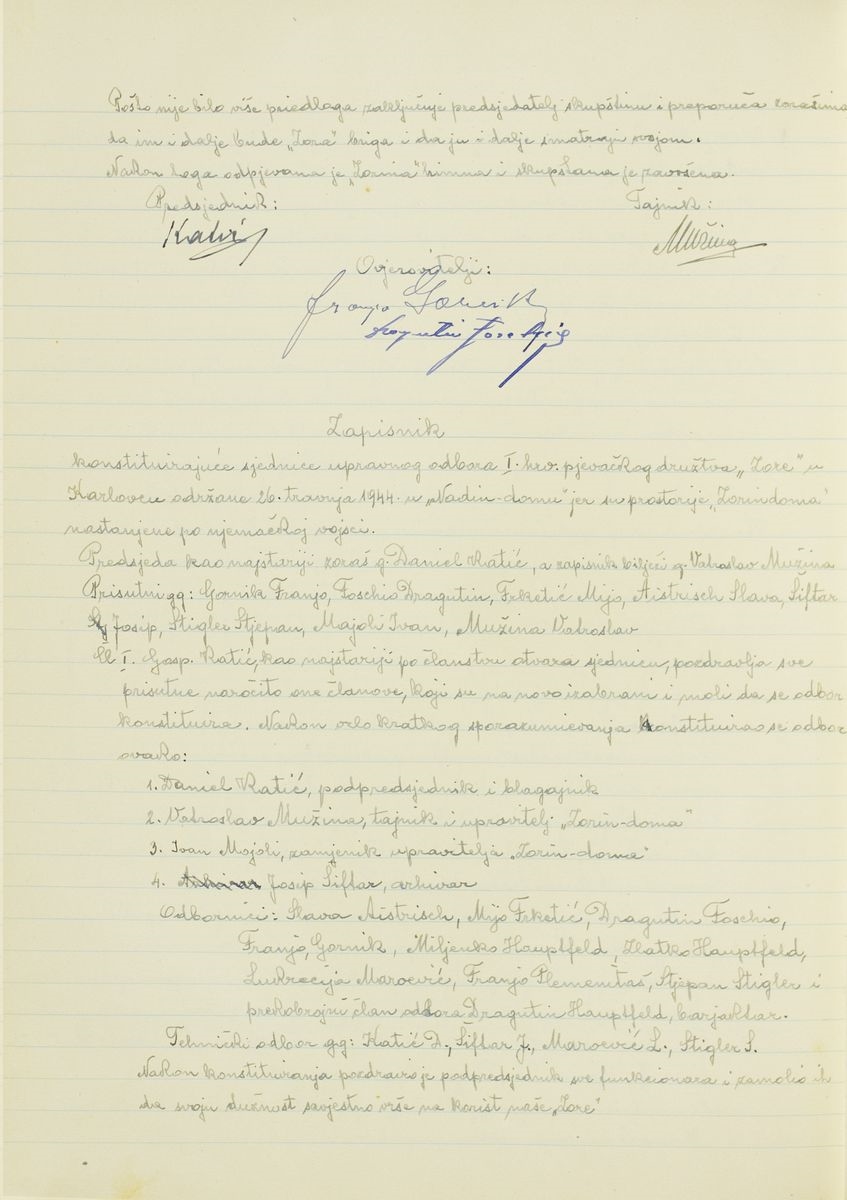 Pošto nije bilo više priedloga zaključuje predsjedatelj skupštinu i preporuča zorašima
da im i dalje bude „Zora" briga i da ju i dalje smatraju svojom.
Nakon toga odpjevana je „Zorina" himna i skupština je završena.
Predsjednik: Tajnik:
Katić Mužina
Ovjerovitelji:
Franjo Gornik
Dragutin Foschio
Zapisnik
konstituirajuće sjednice upravnog odbora I. hrv. pjevačkog družtva „Zore" u
Karlovcu održane 26. travnja 1944. u „Nadin-domu" jer su prostorije „Zorindoma"
nastanjene po njemačkoj vojsci.
Predsjeda kao najstariji zoraš g. Daniel Katić, a zapisnik bilježi g. Vatroslav Mužina
Prisutni gg: Gornik Franjo, Foschio Dragutin, Frketić Mijo, Aistrisch Slava, Šiftar
Josip, Stigler Stjepan, Majoli Ivan, Mužina Vatroslav
Čl I. Gosp. Katić, kao najstariji po članstvu otvara sjednicu, pozdravlja sve
prisutne naročito one članove, koji su na novo izabrani i moli da se odbor
konstituira. Nakon vrlo kratkog sporazumievanja konstituirao se odbor
ovako:
1. Daniel Katić, podpredsjednik i blagajnik
2. Vatroslav Mužina, tajnik i upravitelj „Zorin-doma"
3. Ivan Majoli, zamjenik upravitelja „Zorin-doma"
4. Josip Šiftar, arhivar
Odbornici: Slava Aistrisch, Mijo Frketić, Dragutin Foschio,
Franjo, Gornik, Miljenko Hauptfeld, Zlatko Hauptfeld,
Lukrecija Maroević, Franjo Plemenitaš, Stjepan Stigler i
prekobrojni član odbora Dragutin Hauptfeld, barjaktar.
Tehnički odbor gg: Katić D., Šiftar J., Maroević L., Stigler S.
Nakon konstituiranja pozdravio je podpredsjednik sve funkcionara i zamolio ih
da svoju dužnost savjestno vrše na korist naše „Zore"